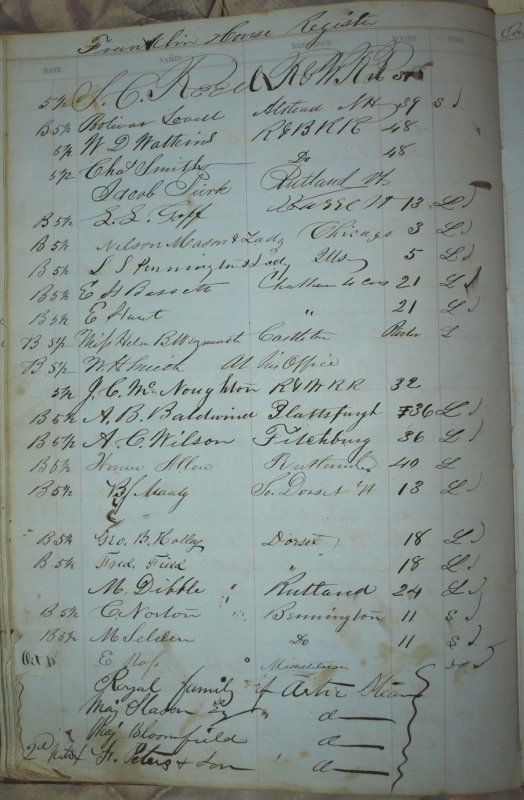 Franklin House Register
DATE NAMES RESIDENCE ROOMS TIME
5½ S. C. Reed R & W R R 31
B 5½ Bolivar Lovell Alstead NH 39 S
5½ W D Watkins R & B R R 48
5½ Chas Smith Do 48
Jacob Rutland Vt
B 5½ Barre Vt 13 L
B 5½ Nelson Mason & Lady Chicago 3 L
B 5½ L S Pennington & Lady Ills 5 L
B 5½ E H Bassett Chatham 4 Cors 21 L
B 5½ E Hunt " 21 L
B 5½ Miss Helen B Castleton Parlor L
B 5½ W H At his Office
5½ J. C. McNoughton R & W R R 32
B 5½ A. B. Baldwin Plattsburgh 36 L
B 5½ A. C. Wilson Fitchburg 36 L
B 5½ Horace Allen Rutland 40 L
B 5½ Manly So. Dorset Vt 13 L
B 5½ Geo. B. Holley Dorset 18 L
B 5½ Fred. Field " 18 L
M. Dibble " Rutland 24 L
B 5½ C. Norton " Bennington 11 S
B 5½ M Selden Do 11 S
E Ross
Royal family of
Maj
Maj Bloomfield
2d St. Peters & Son